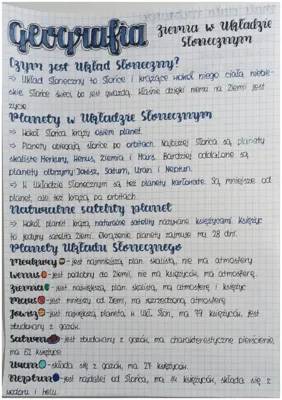 Geografia Ziemia w Układzie
Słonecznym
Czym jest Układ Słoneczny?
⇒ Układ Słoneczny to Słońce i krążące wokół niego ciała niebie-
skie. Słońce świeci, bo jest gwiazdą. Właśnie dzięki niemu na Ziemi jest
życie.
Planety w Układzie Słonecznym
⇒ Wokół Słońca krąży osiem planet.
⇒ Planety obiegają słońce po orbitach. Najbliżej Słońca są, planety
skaliste Merkury, Wenus, Ziemia i Mars. Bardziej oddalone są,
planety olbrzymy Jowisz, Saturn, Uran, i Neptun.
⇒ W Układzie Słonecznym są też planety karłowate. Są mniejsze od
planet, ale też krążą po orbitach.
Naturalne satelity planet
⇒ Wokół planet krążą naturalne satelity nazywane księżycami. Księżyc
to jedyny satelita Ziemi. Okrążenie planety zajmuje mu 28 dni.
Planety Układu Słonecznego
Merkury - jest najmniejszą plan. skalistą, nie ma atmosfery
Wenus - jest podobny do Ziemi, nie ma księżyców, ma atmosferę.
Ziemia - jest największą, plan. skalistą, ma atmosferę i księżyc
Mars - jest mniejszy od Ziemi, ma rozrzedzoną atmosferę
Jowisz - jest największą planetą w Ukł. Słon., ma 79 księżyców, jest
zbudowany z gazów.
Saturn - jest zbudowany z gazów, ma charakterystyczne pierścienie,
ma 62 księżyce
Uran - składa się z gazów, ma 27 księżyców.
Neptun - jest najdalej od Słońca, ma 14 księżyców, składa się z
wodoru i helu.